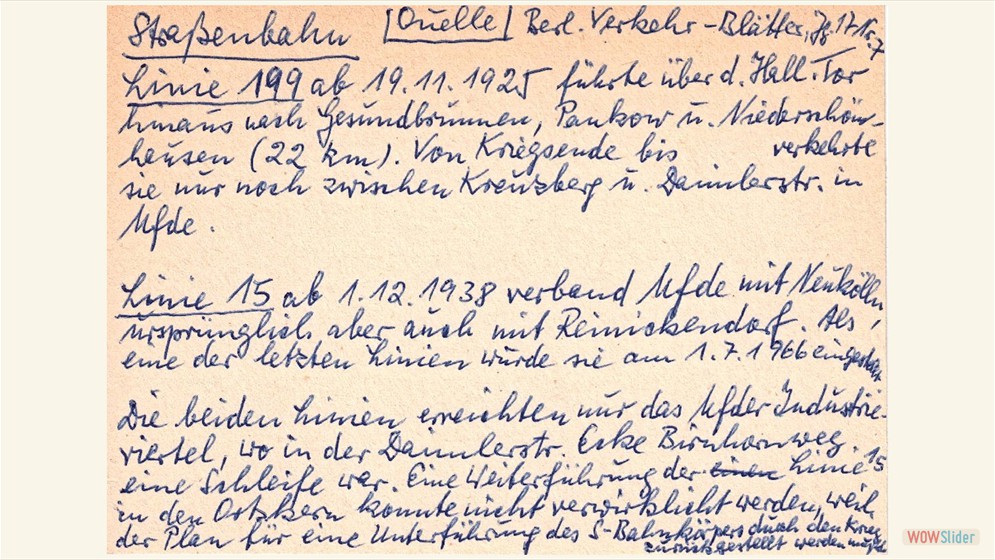 Straßenbahn [Quelle] Berl. Verkehr-Blätter, Jg. 17 Nr. 7
Linie 199 ab 19.11.1925 führte über d. Hall. Tor
hinaus nach Gesundbrunnen, Pankow u. Niederschön-
hausen (22 km). Von Kriegsende bis verkehrte
sie nur noch zwischen Kreuzberg u. Daimlerstr. in
Mfde.
Linie 15 ab 1.12.1938 verband Mfde mit Neukölln,
ursprünglich aber auch mit Reinickendorf. Als
eine der letzten Linien wurde sie am 1.7.1966 eingestellt
Die beiden Linien erreichten nur das Mfder Industrie-
viertel, wo in der Daimlerstr. Ecke Birnhornweg
eine Schleife war. Eine Weiterführung der einen Linie 15
in den Ortskern konnte nicht verwirklicht werden, weil
der Plan für eine Unterführung des S-Bahnkörpers durch den Krieg
zurückgestellt werden mußte
WOWSlider